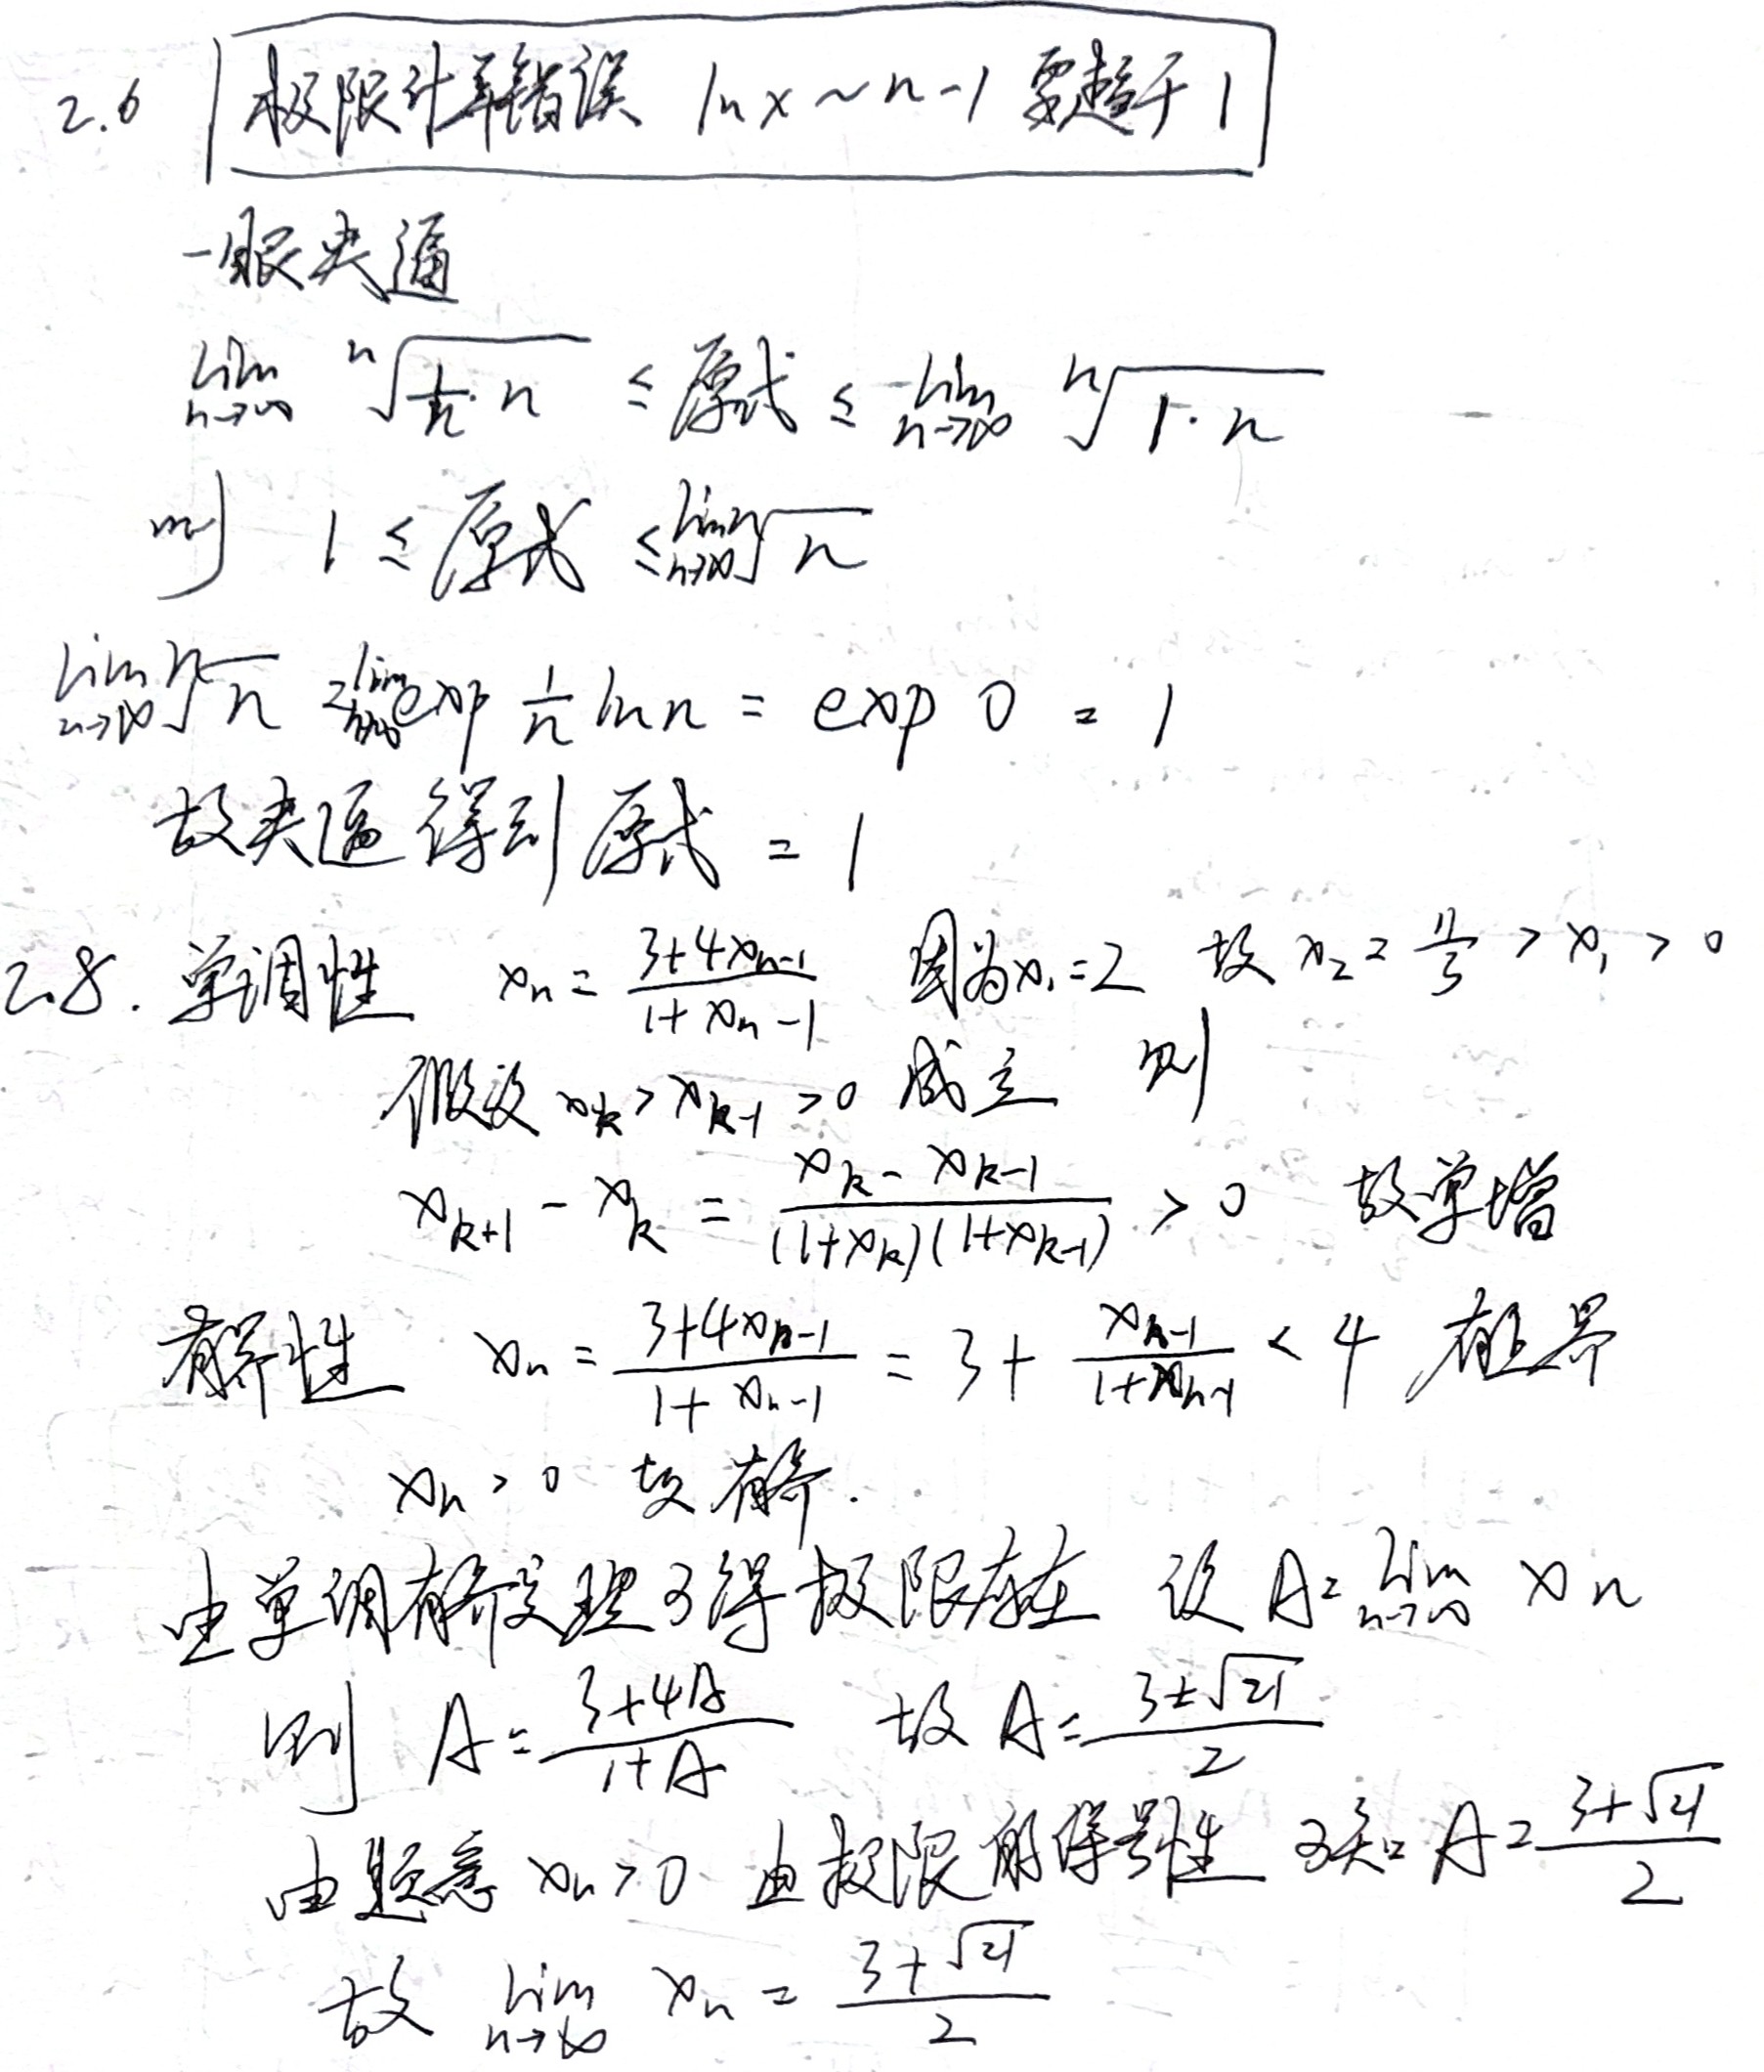 2.6 极限计算错误 ln x ~ n-1 要趋于 1
一眼夹逼
lim n→∞ ⁿ√(1/n · n) ≤ 原式 ≤ lim n→∞ ⁿ√(1·n)
则 1 ≤ 原式 ≤ lim n→∞ ⁿ√n
lim n→∞ ⁿ√n = lim n→∞ exp 1/n ln n = exp 0 = 1
故夹逼得到原式 = 1
2.8. 单调性 xₙ = (3+4xₙ₋₁)/(1+xₙ₋₁) 因为x₁=2 故 x₂ = 11/3 > x₁ > 0
假设 xₖ > xₖ₋₁ > 0 成立 则
xₖ₊₁ - xₖ = (xₖ - xₖ₋₁)/((1+xₖ)(1+xₖ₋₁)) > 0 故单增
有界性 xₙ = (3+4xₙ₋₁)/(1+xₙ₋₁) = 3 + xₙ₋₁/(1+xₙ₋₁) < 4 有上界
xₙ > 0 故有界.
由单调有界定理可得极限存在 设 A = lim n→∞ xₙ
则 A = (3+4A)/(1+A) 故 A = (3±√21)/2
由题意 xₙ > 0 由极限的保号性 可知 A = (3+√21)/2
故 lim n→∞ xₙ = (3+√21)/2